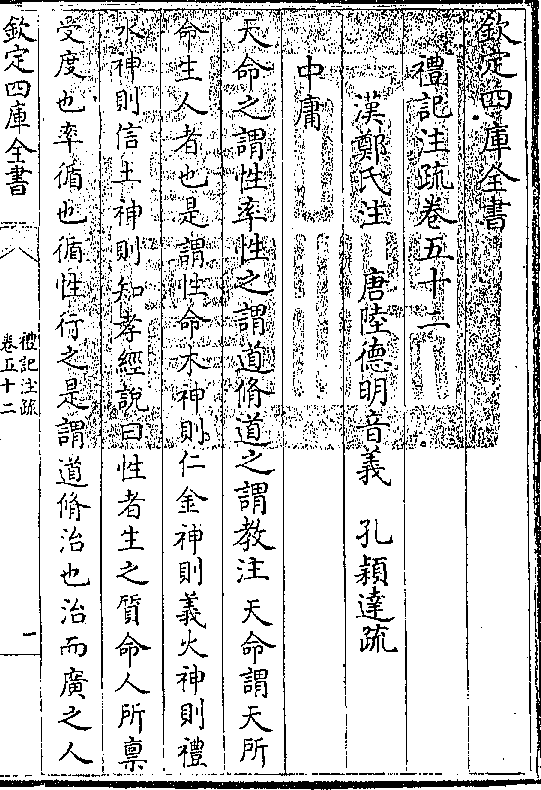 欽定四庫全書
禮記注疏卷五十二
漢鄭氏注 唐陸德明音義 孔穎達疏
中庸
天命之謂性率性之謂道脩道之謂教注天命謂天所
命生人者也是謂性命木神則仁金神則義火神則禮
水神則信土神則知孝經說曰性者生之質命人所禀
受度也率循也循性行之是謂道脩治也治而廣之人
欽定四庫全書
禮記注疏
卷五十二
一